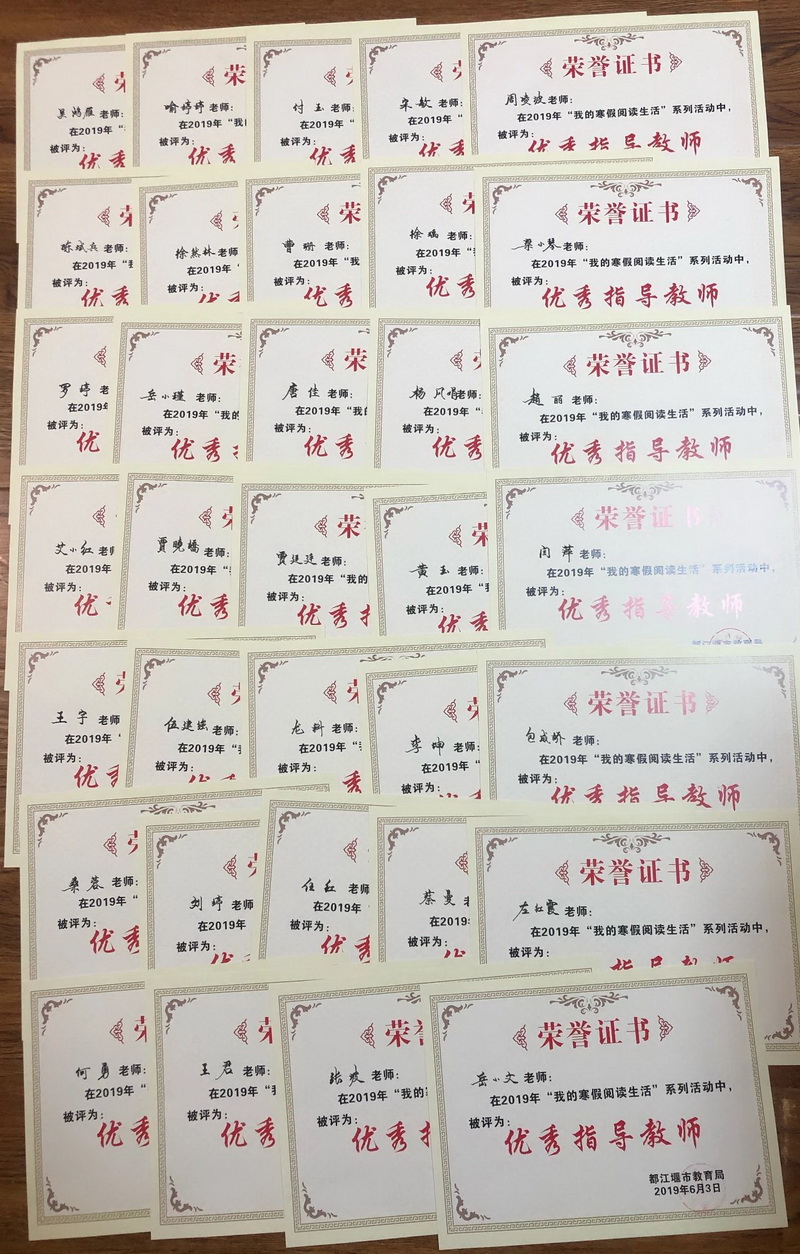 荣
吴鸿雁 老师:
在2019年 “
被评为:
优秀
荣
喻婷婷 老师:
在2019年 “我
被评为:
优秀
荣
付玉 老师:
在2019年 “我
被评为:
优秀
荣
宋敏 老师:
在2019年 “我
被评为:
优秀
荣誉证书
周凌波 老师:
在2019年 “我的寒假阅读生活” 系列活动中,
被评为:
优秀指导教师
荣
陈斌兵 老师:
在2019年 “我
被评为:
优秀
荣
徐然林 老师:
在2019年 “
被评为:
优秀
荣
曹珊 老师:
在2019年 “我
被评为:
优秀
荣
徐瑀 老师:
在2019年 “
被评为:
优秀
荣誉证书
梁小琴 老师:
在2019年 “我的寒假阅读生活” 系列活动中,
被评为:
优秀指导教师
罗婷 老
在2019年
被评为:
优
荣
岳小瑾 老师:
在2019年 “我的
被评为:
优秀指
荣
唐佳 老师:
在2019年 “我的
被评为:
优秀
荣
杨凤鸣 老师:
在2019年 “我
被评为:
优秀
荣誉证书
赵丽 老师:
在2019年 “我的寒假阅读生活” 系列活动中,
被评为:
优秀指导教师
艾小红 老师
在2019年
被评为:
优
荣
贾晓娇 老师:
在2019年 “
被评为:
优秀
荣
贾廷廷 老师:
在2019年 “我的
被评为:
优秀指
荣
黄玉 老师:
在2019年 “我
被评为:
优秀
荣誉证书
闵萍 老师:
在2019年 “我的寒假阅读生活” 系列活动中,
被评为:
优秀指导教师
都江堰市教育局
荣
王宇 老师
在2019年 “
被评为:
优秀
荣
伍建 老师:
在2019年 “我
被评为:
优秀
荣
龙科 老师:
在2019年 “我
被评为:
优秀
荣
李坤 老师:
在2019年 “我
被评为:
荣誉证书
包成娇 老师:
在2019年 “我的寒假阅读生活” 系列活动中,
被评为:
优秀指导教师
荣
桑蓉 老师:
在2019年 “
被评为:
优秀
荣
刘婷 老师:
在2019年 “
被评为:
优秀
荣
任红 老师:
在2019年 “
被评为:
优秀
荣
蔡曼 老师:
在2019
被评为:
优
荣誉证书
左红霞 老师:
在2019年 “我的寒假阅读生活” 系列活动中,
被评为:
指导教师
荣
何勇 老师:
在2019年 “
被评为:
优秀
荣
王君 老师:
在2019年 “我
被评为:
优秀
荣誉
张坡 老师:
在2019年 “我的
被评为:
优秀指
荣誉证书
岳小文 老师:
在2019年 “我的寒假阅读生活” 系列活动中,
被评为:
优秀指导教师
都江堰市教育局
2019年6月3日